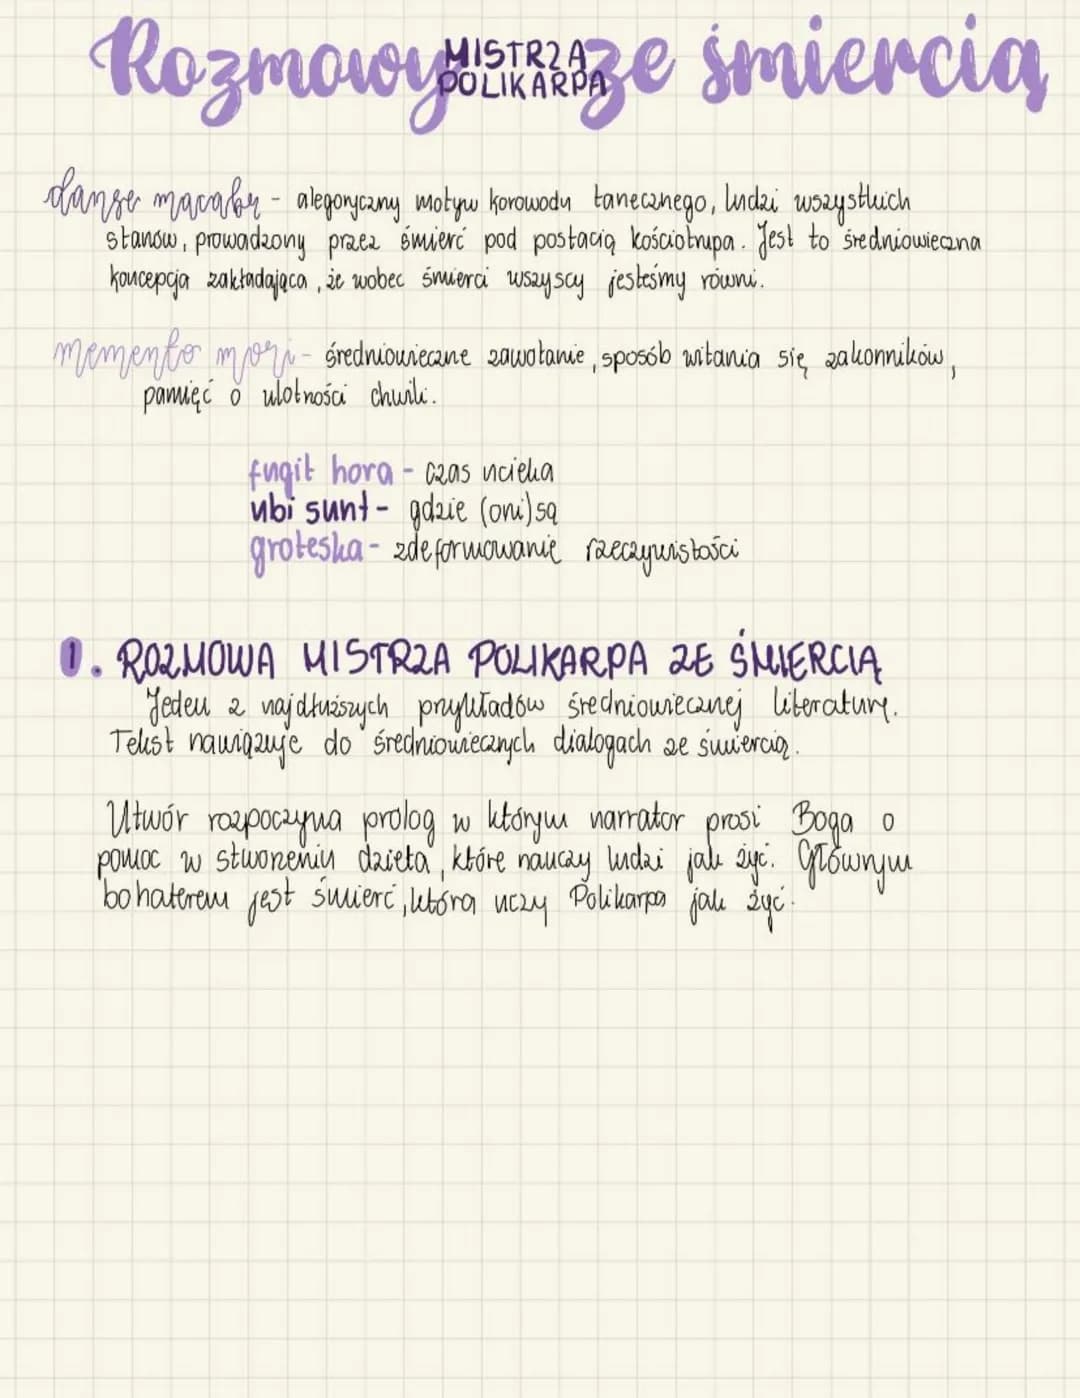 Rozmowy MISTRZA POLIKARPA ze śmiercią
danse macabr - alegoryczny motyw korowodu tanecznego, ludzi wszystkich
stanów, prowadzony przez śmierć pod postacią kościotrupa. Jest to średniowieczna
koncepcja zakładająca, że wobec śmierci wszyscy jesteśmy równi.
memento mori - średniowieczne zawołanie, sposób witania się zakonników,
pamięć o ulotności chwili.
fugit hora - czas ucieka
ubi sunt - gdzie (oni) są
groteska - zdeformowanie rzeczywistości
1. ROZMOWA MISTRZA POLIKARPA ZE ŚMIERCIĄ
Jeden z najdłuższych przykładów średniowiecznej literatury.
Tekst nawiązuje do średniowiecznych dialogach ze śmiercią.
Utwór rozpoczyna prolog w którym narrator prosi Boga o
pomoc w stworzeniu dzieła, które nauczy ludzi jak żyć. Głównym
bohaterem jest śmierć, która uczy Polikarpa jak żyć.